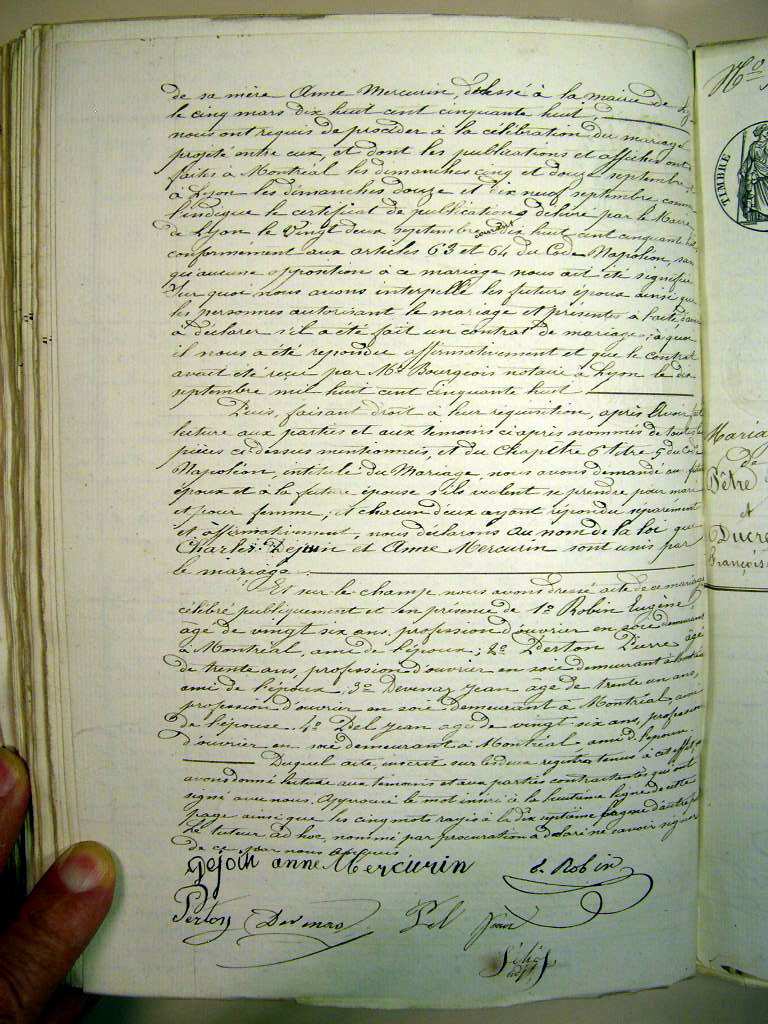 de sa mère Anne Mercurin, dressé à la mairie de
le cinq mars dix huit cent cinquante huit,
nous ont requis de procéder à la célébration du mariage
projeté entre eux, et dont les publications et affiches ont
faites à Montréal les dimanches cinq et douze septembre
à Lyon les dimanches douze et dix neuf septembre comme
l'indique le certificat de publications délivré par le Maire
de Lyon le vingt deux septembre dix huit cent cinquante huit,
conformément aux articles 63 et 64 du Code Napoléon, sans
qu'aucune opposition à ce mariage nous ait été signifiée
Sur quoi nous avons interpellé les futurs époux ainsi que
les personnes autorisant le mariage et présentes à l'acte, d'avoir
à déclarer s'il a été fait un contrat de mariage; à quoi
il nous a été répondu affirmativement et que le contrat
avait été reçu par Me Bourgeois notaire à Lyon le dix
septembre mil huit cent cinquante huit
Puis, faisant droit à leur réquisition, après avoir
lecture aux parties et aux témoins ci après nommés de toutes
pièces ci-dessus mentionnées, et du Chapitre 6 titre 5 du Code
Napoléon, intitulé du Mariage, nous avons demandé au futur
époux et à la future épouse s'ils veulent se prendre pour mari
et pour femme, et chacun d'eux ayant répondu séparément
et affirmativement, nous déclarons au nom de la loi que
Charles Dejoin et Anne Mercurin sont unis par
le mariage
Et sur le champ, nous avons dressé acte de ce mariage
célébré publiquement et en présence de 1o Robin Eugène,
âgé de vingt six ans, profession d'ouvrier en soie demeurant
à Montréal, ami de l'époux; 2o Perton Pierre âgé
de trente ans, profession d'ouvrier en soie demeurant à Montréal
ami de l'époux; 3o Devenaz Jean âgé de trente un ans,
profession d'ouvrier en soie demeurant à Montréal, ami
de l'épouse. 4o Pel Jean âgé de vingt six ans, profession
d'ouvrier en soie demeurant à Montréal, ami de l'épouse
Duquel acte, inscrit sur les deux registres tenus à cet effet,
avons donné lecture aux témoins et aux parties contractantes qui ont
signé avec nous. Approuvé le mot à la huitième ligne de cette
page ainsi que les cinq mots rayés à la dix septième
Le tuteur ad hoc, nommé par procuration a déclaré ne savoir signer
de ce par nous requis
Dejoin anne Mercurin E. Robin
Perton Devenas Pel Jean
TIMBRE
No
Mariage
de
Pêtre
et
Ducre
François